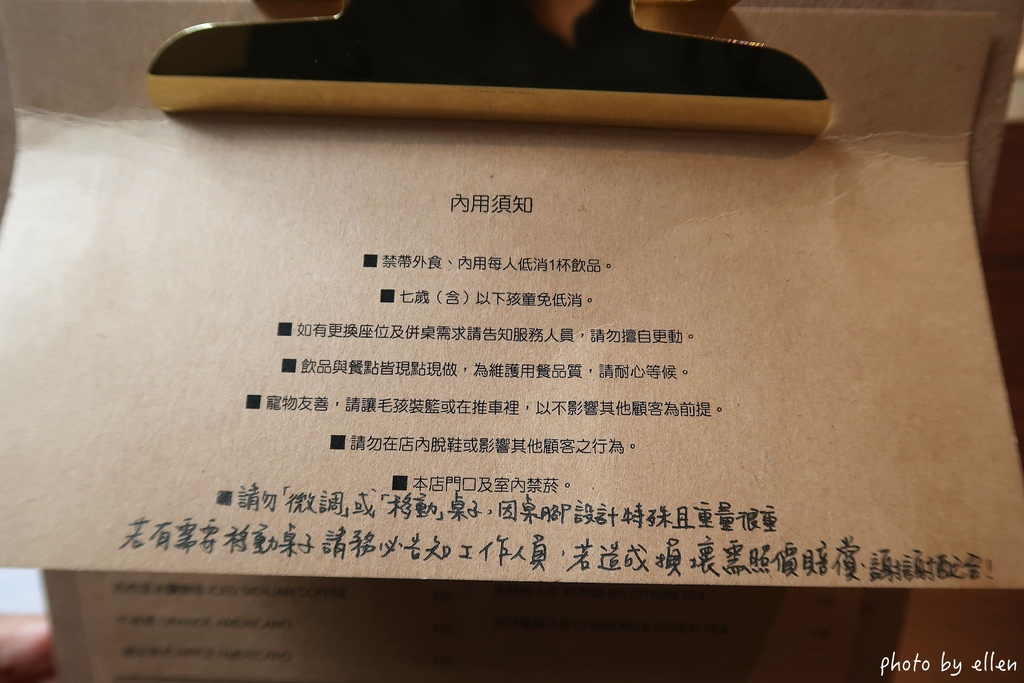 內用須知
■ 禁帶外食、內用每人低消1杯飲品。
■ 七歲（含）以下孩童免低消。
■ 如有更換座位及併桌需求請告知服務人員，請勿擅自更動。
■ 飲品與餐點皆現點現做，為維護用餐品質，請耐心等候。
■ 寵物友善，請讓毛孩裝籃或在推車裡，以不影響其他顧客為前提。
■ 請勿在店內脫鞋或影響其他顧客之行為。
■ 本店門口及室內禁菸。
■ 請勿「微調」或「移動」桌子，因桌腳設計特殊且重量很重
若有需要移動桌子請務必告知工作人員，若造成損壞需照價賠償，謝謝
ICED SICILIAN COFFEE
KUMQUAT CITRON TEA
ORANGE AMERICANO
CHAMOMILE CITRON TEA
APPLE AMERICANO
photo by ellen